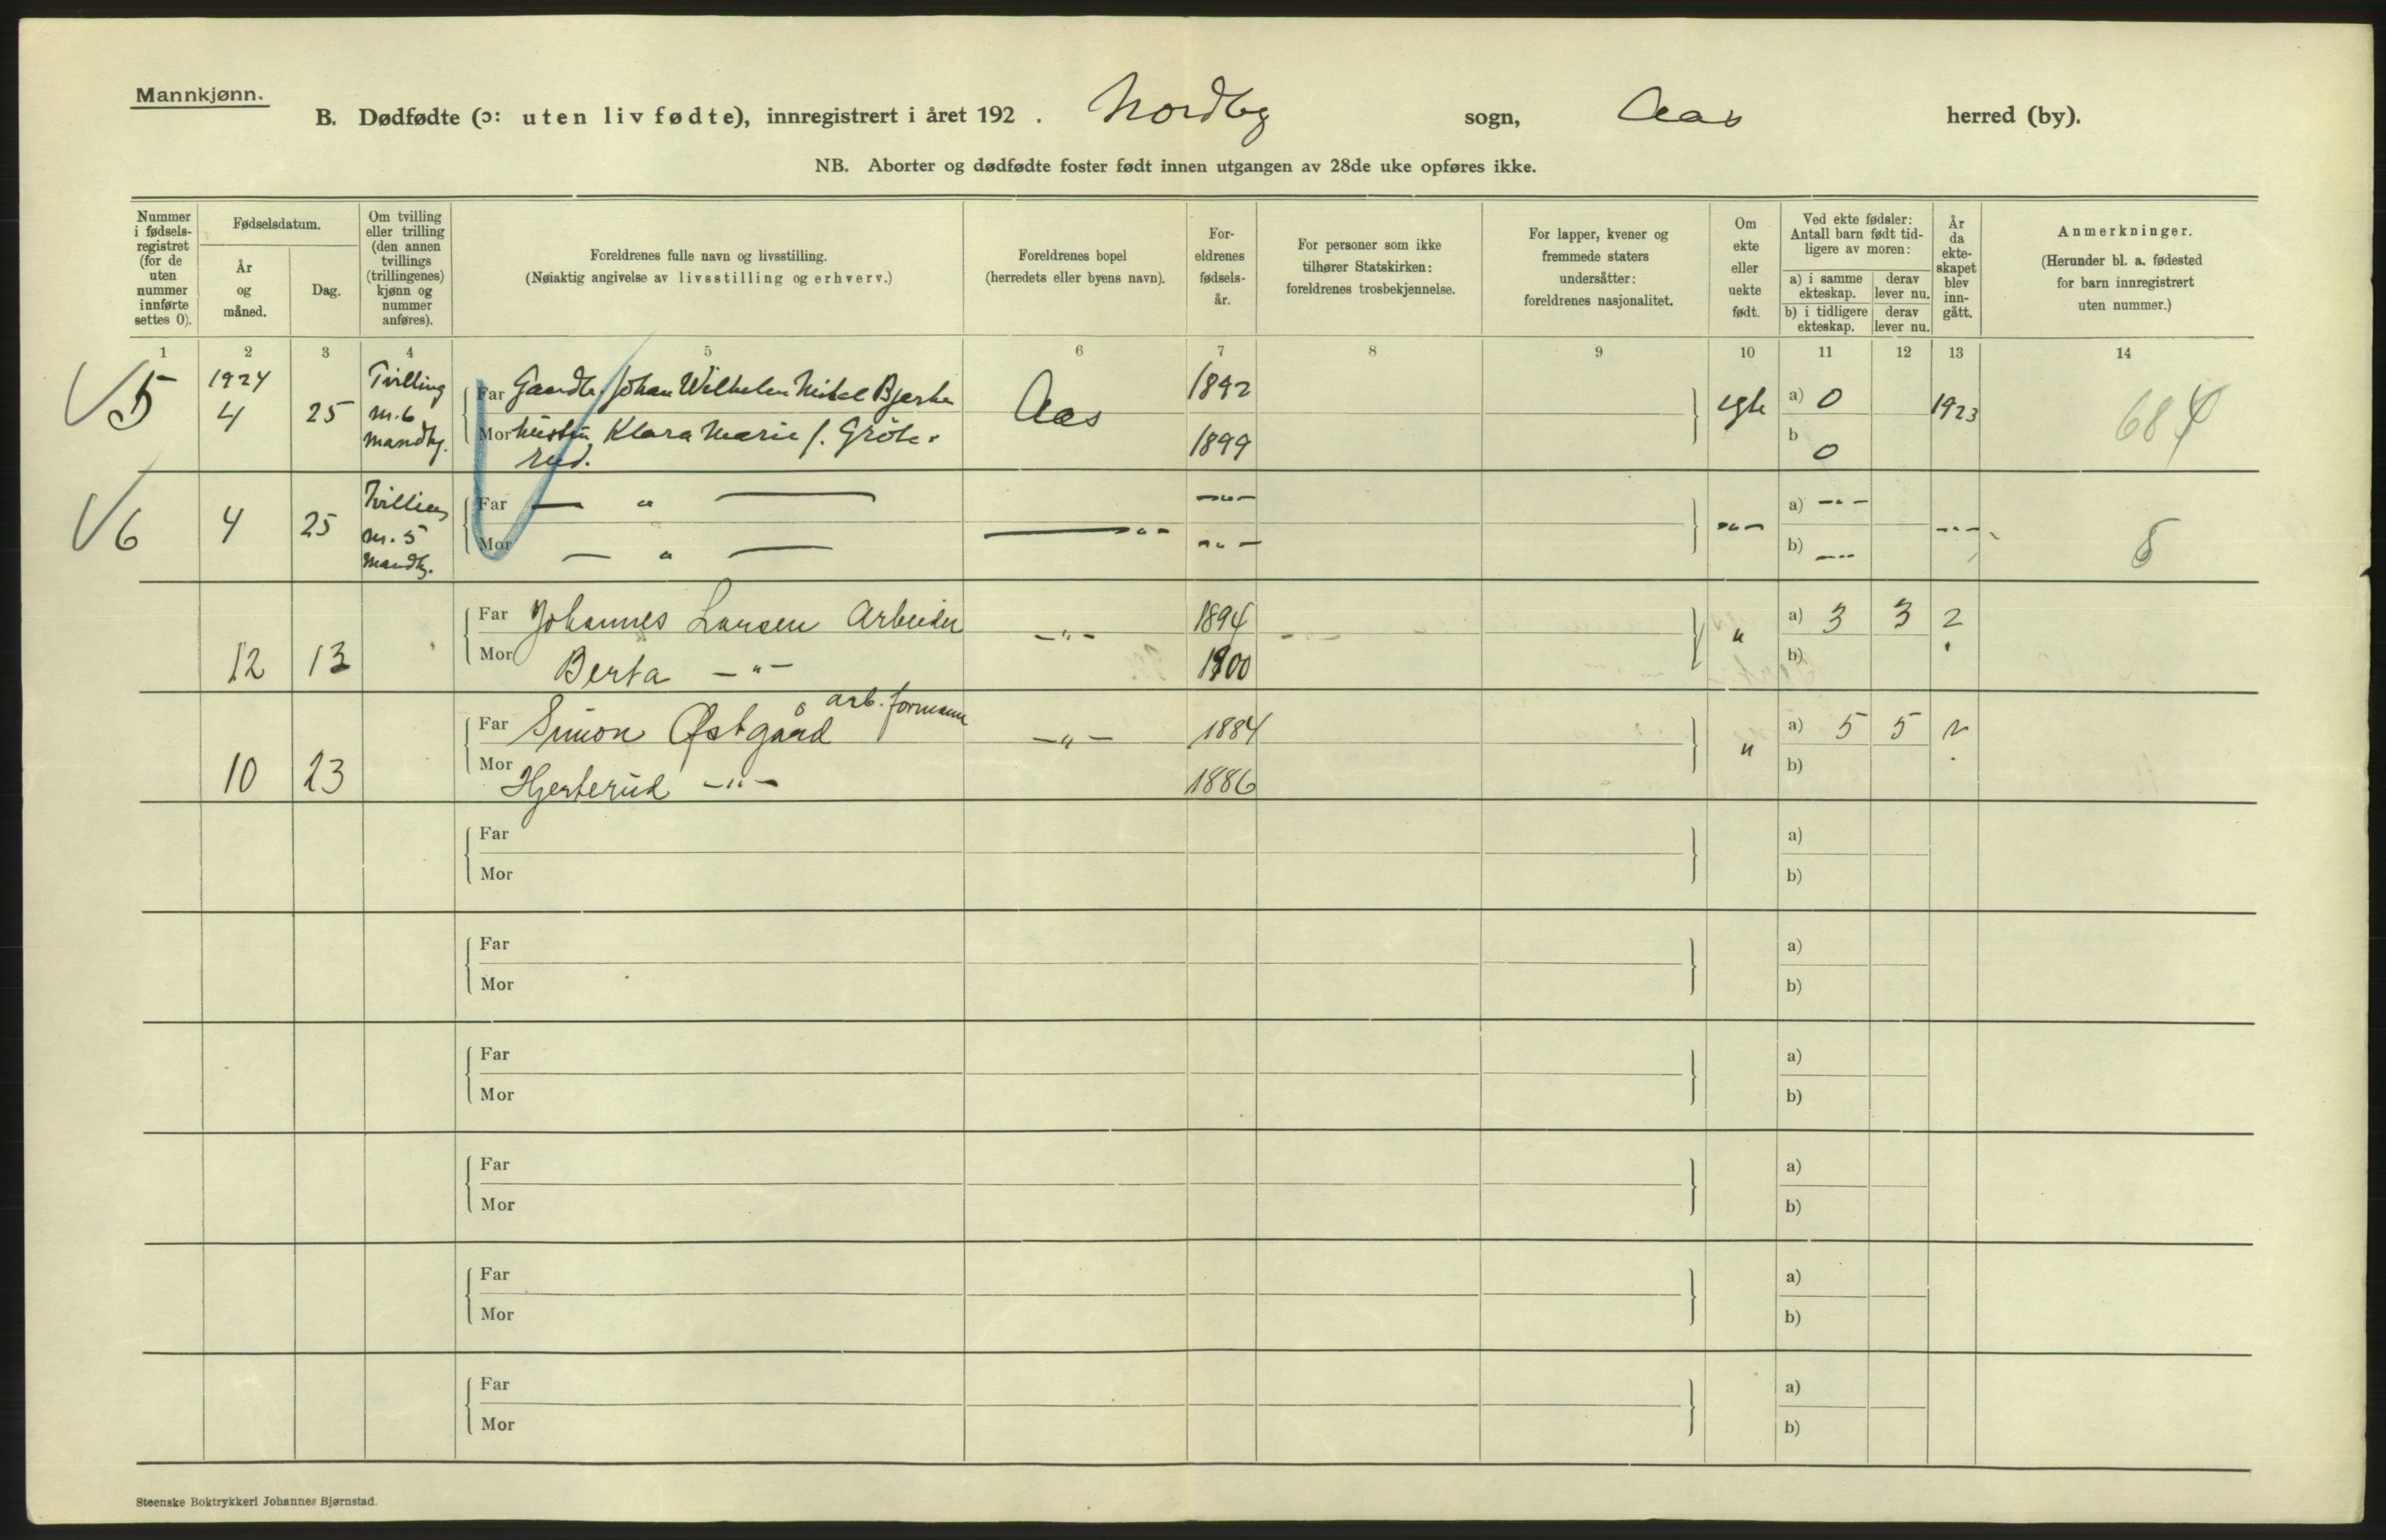 Mannkjønn.
B. Dødfødte (ɔ: uten liv fødte), innregistrert i året 192 . Nordby sogn, Aas herred (by).
NB. Aborter og dødfødte foster født innen utgangen av 28de uke opføres ikke.
Nummer i fødsels- registret (for de uten nummer innførte settes 0).
Fødselsdatum.
År og måned.
Dag.
Om tvilling eller trilling (den annen tvillings (trillingenes) kjønn og nummer anføres).
Foreldrenes fulle navn og livsstilling.
(Nøiaktig angivelse av livsstilling og erhverv.)
Foreldrenes bopel
(herredets eller byens navn).
For- eldrenes fødsels- år.
For personer som ikke
tilhører Statskirken:
foreldrenes trosbekjennelse.
For lapper, kvener og
fremmede staters
undersåtter:
foreldrenes nasjonalitet.
Om ekte eller uekte født.
Ved ekte fødsler:
Antall barn født tid-
ligere av moren:
a) i samme ekteskap.
derav lever nu.
b) i tidligere ekteskap.
derav lever nu.
År da ekte- skapet blev inn- gått.
Anmerkninger.
(Herunder bl. a. fødested
for barn innregistrert
uten nummer.)
1 2 3 4 5 6 7 8 9 10 11 12 13 14
5 1924 4 25 Tvilling m. 6 mandkj.
Far Gaardbr. Johan Wilhelm Mikal Bjerke Aas 1892 egte a) 0 1923 684
Mor hustru Klara Marie f. Gröte- 1899 b 0
rud.
6 4 25 Tvilling m. 5 mandkj.
Far — " — —"— —"— —"— a) —"— —"— 8
Mor — " — —"— b) —"—
12 13 Far Johannes Larsen Arbeider —"— 1894 " a) 3 3 2
Mor Berta —"— 1900 b)
10 23 Far Simon Østgård arb. formann —"— 1884 " a) 5 5 2
Mor Hjerterud —"— 1886 b)
Far a)
Mor b)
Far a)
Mor b)
Far a)
Mor b)
Far a)
Mor b)
Far a)
Mor b)
Far a)
Mor b)
Steenske Boktrykkeri Johannes Bjørnstad.